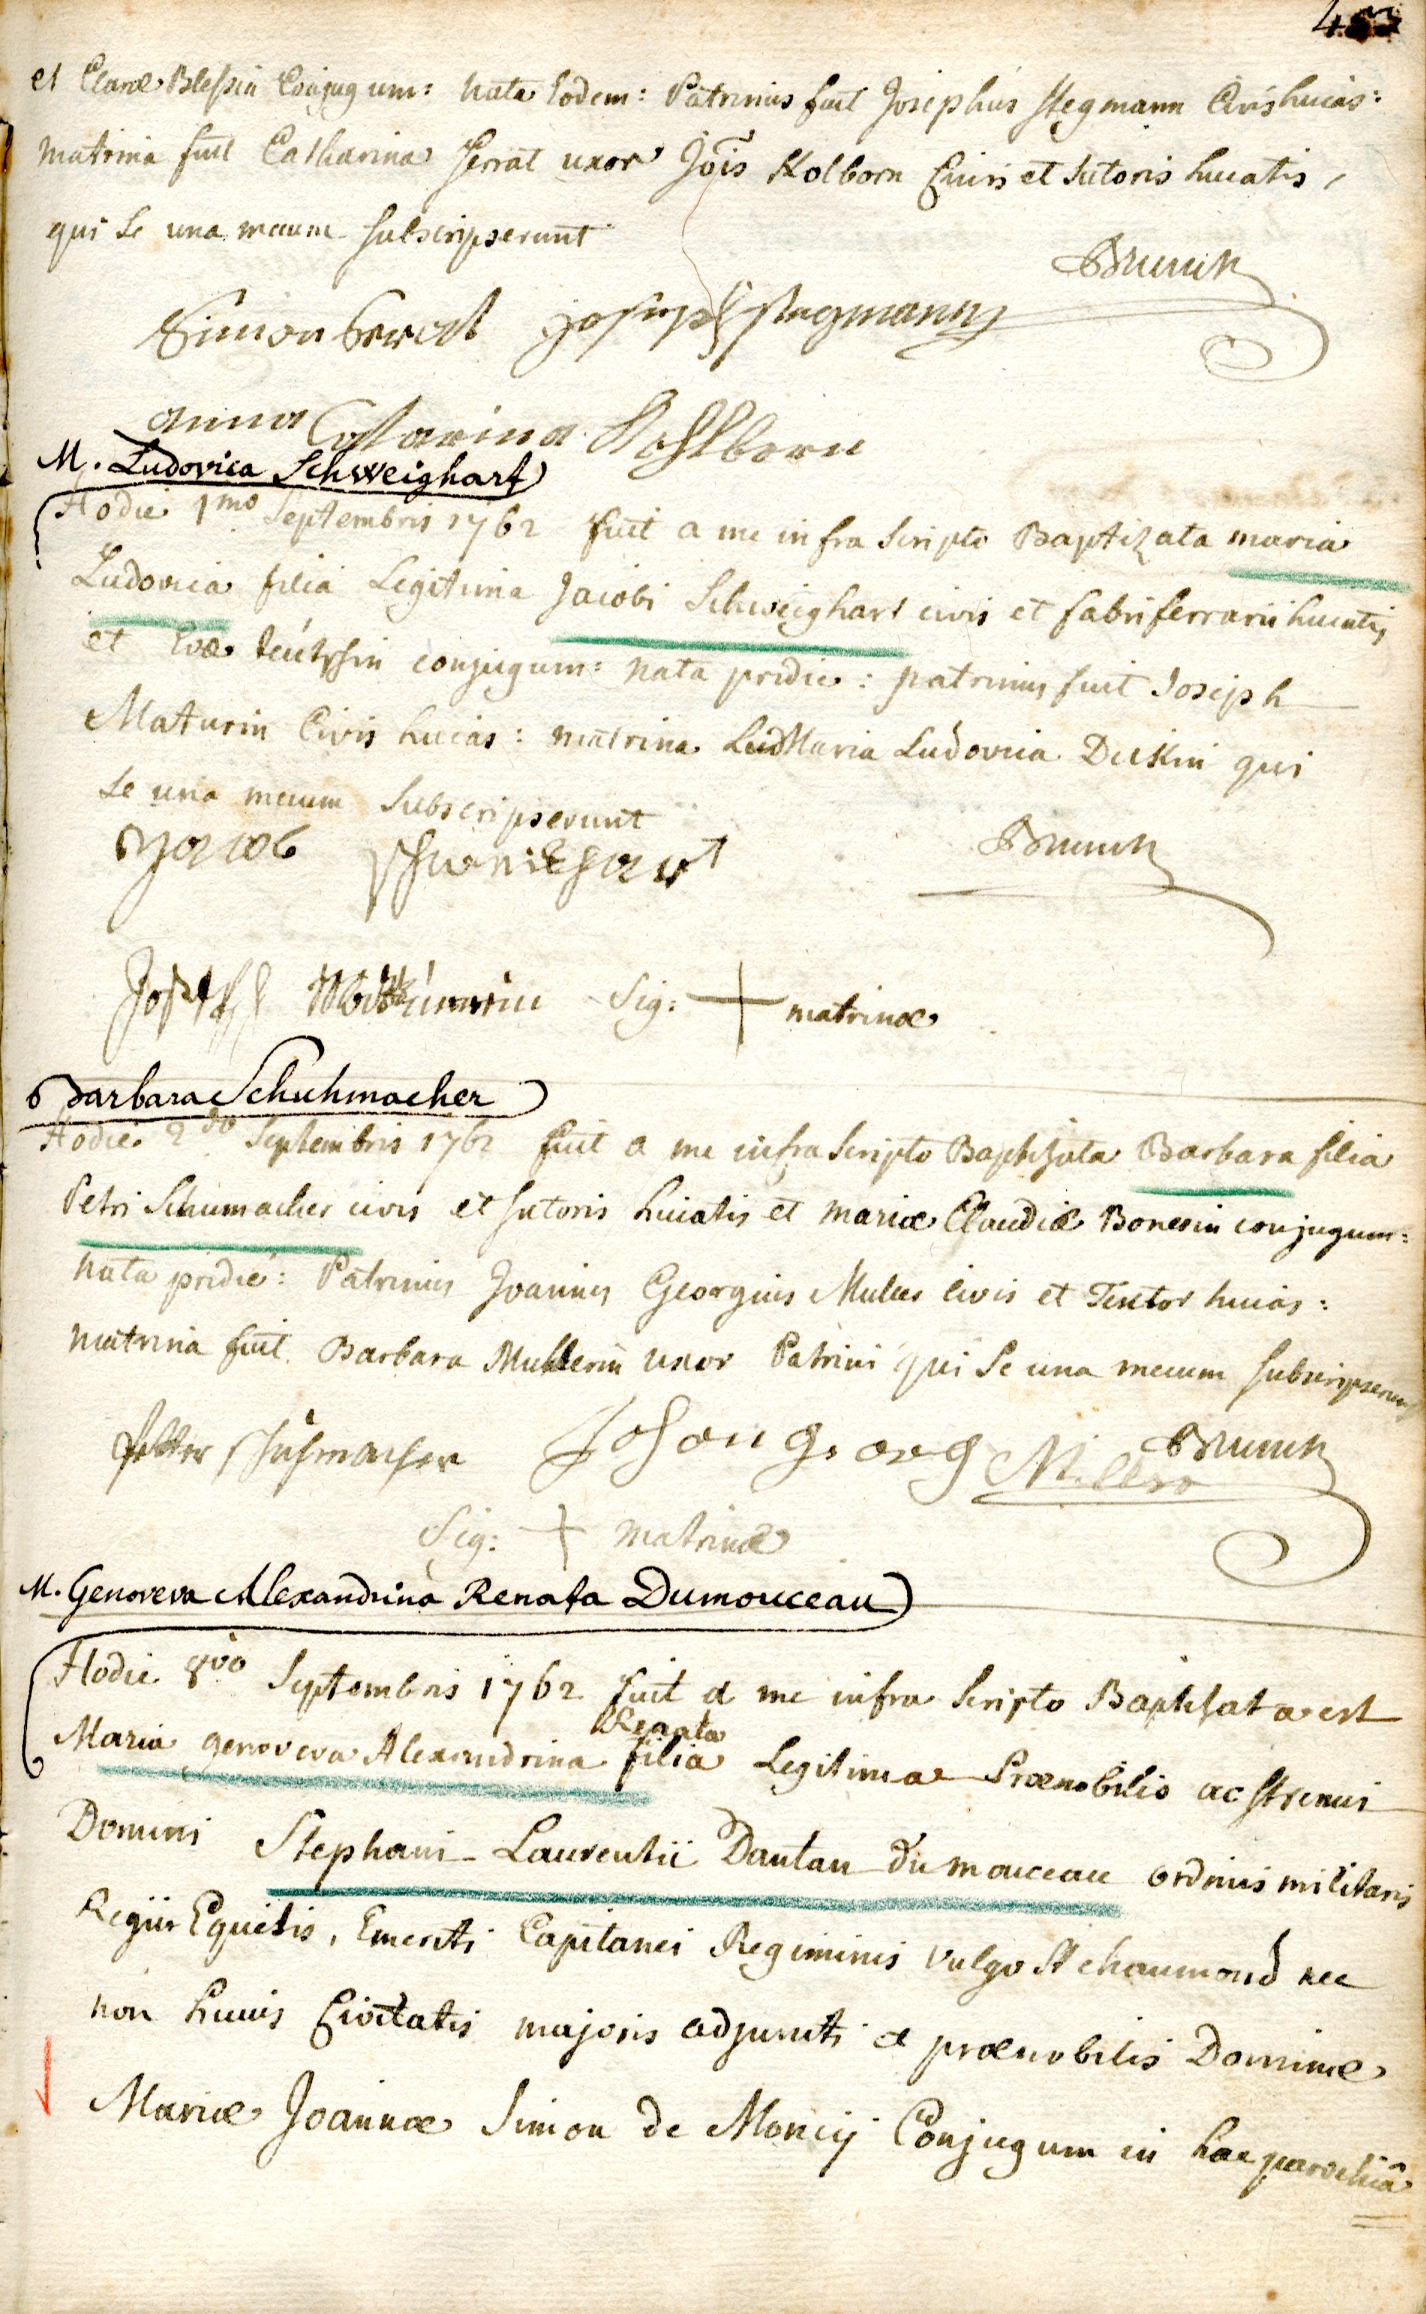 et Claræ Blessin Conjugum: nata Eodem: Patrinus fuit Josephus Stegmann Civis huias:
matrina fuit Catharina Serrat uxor Jois Kolborn Civis et Sutoris huiatis,
qui se una mecum subscripserunt
Brunck
Simon Joseph Stegmann
anna Catarina Kohlborn
M. Ludovica Schweighart
Hodie 1mo Septembris 1762 fuit a me infra Scripto Baptizata maria
Ludovica filia Legitima Jacobi Schweighart civis et fabri ferrarii huiatis
et Evæ conjugum: nata pridie: patrinus fuit Joseph
Maturin Civis huias: matrina Maria Ludovica Duskin qui
se una mecum subscripserunt
Brunck
Yacob Schweighart
Joseph Sig: + matrinæ
Barbara Schuhmacher
Hodie 2do Septembris 1762 fuit a me infra Scripto Baptizata Barbara filia
Petri Schumacher civis et sutoris huiatis et mariæ Claudiæ Bonesin conjugum:
nata pridie: Patrinus Joannes Georgius Muller Civis et Textor huias:
matrina fuit Barbara Mullerin uxor Patrini qui se una mecum subscripserunt
Petter Schuhmacher Johan Georg Miller Brunck
Sig: + Matrinæ
M. Genoveva Alexandrina Renata Dumouceau
Hodie 8vo Septembris 1762 fuit a me infra Scripto Baptizata est
Renata
Maria genoveva Alexandrina filia Legitima Prænobilis ac strenui
Domini Stephani Laurentii Dantan du mouceau ordinis militaris
Regii Equitis, Emeriti Capitanei Regiminis vulgo St chaumond nec
non huius Civitatis majoris adjuncti & prænobilis Dominæ
Mariæ Joannæ Simon de Moncy Conjugum in hac parochiâ